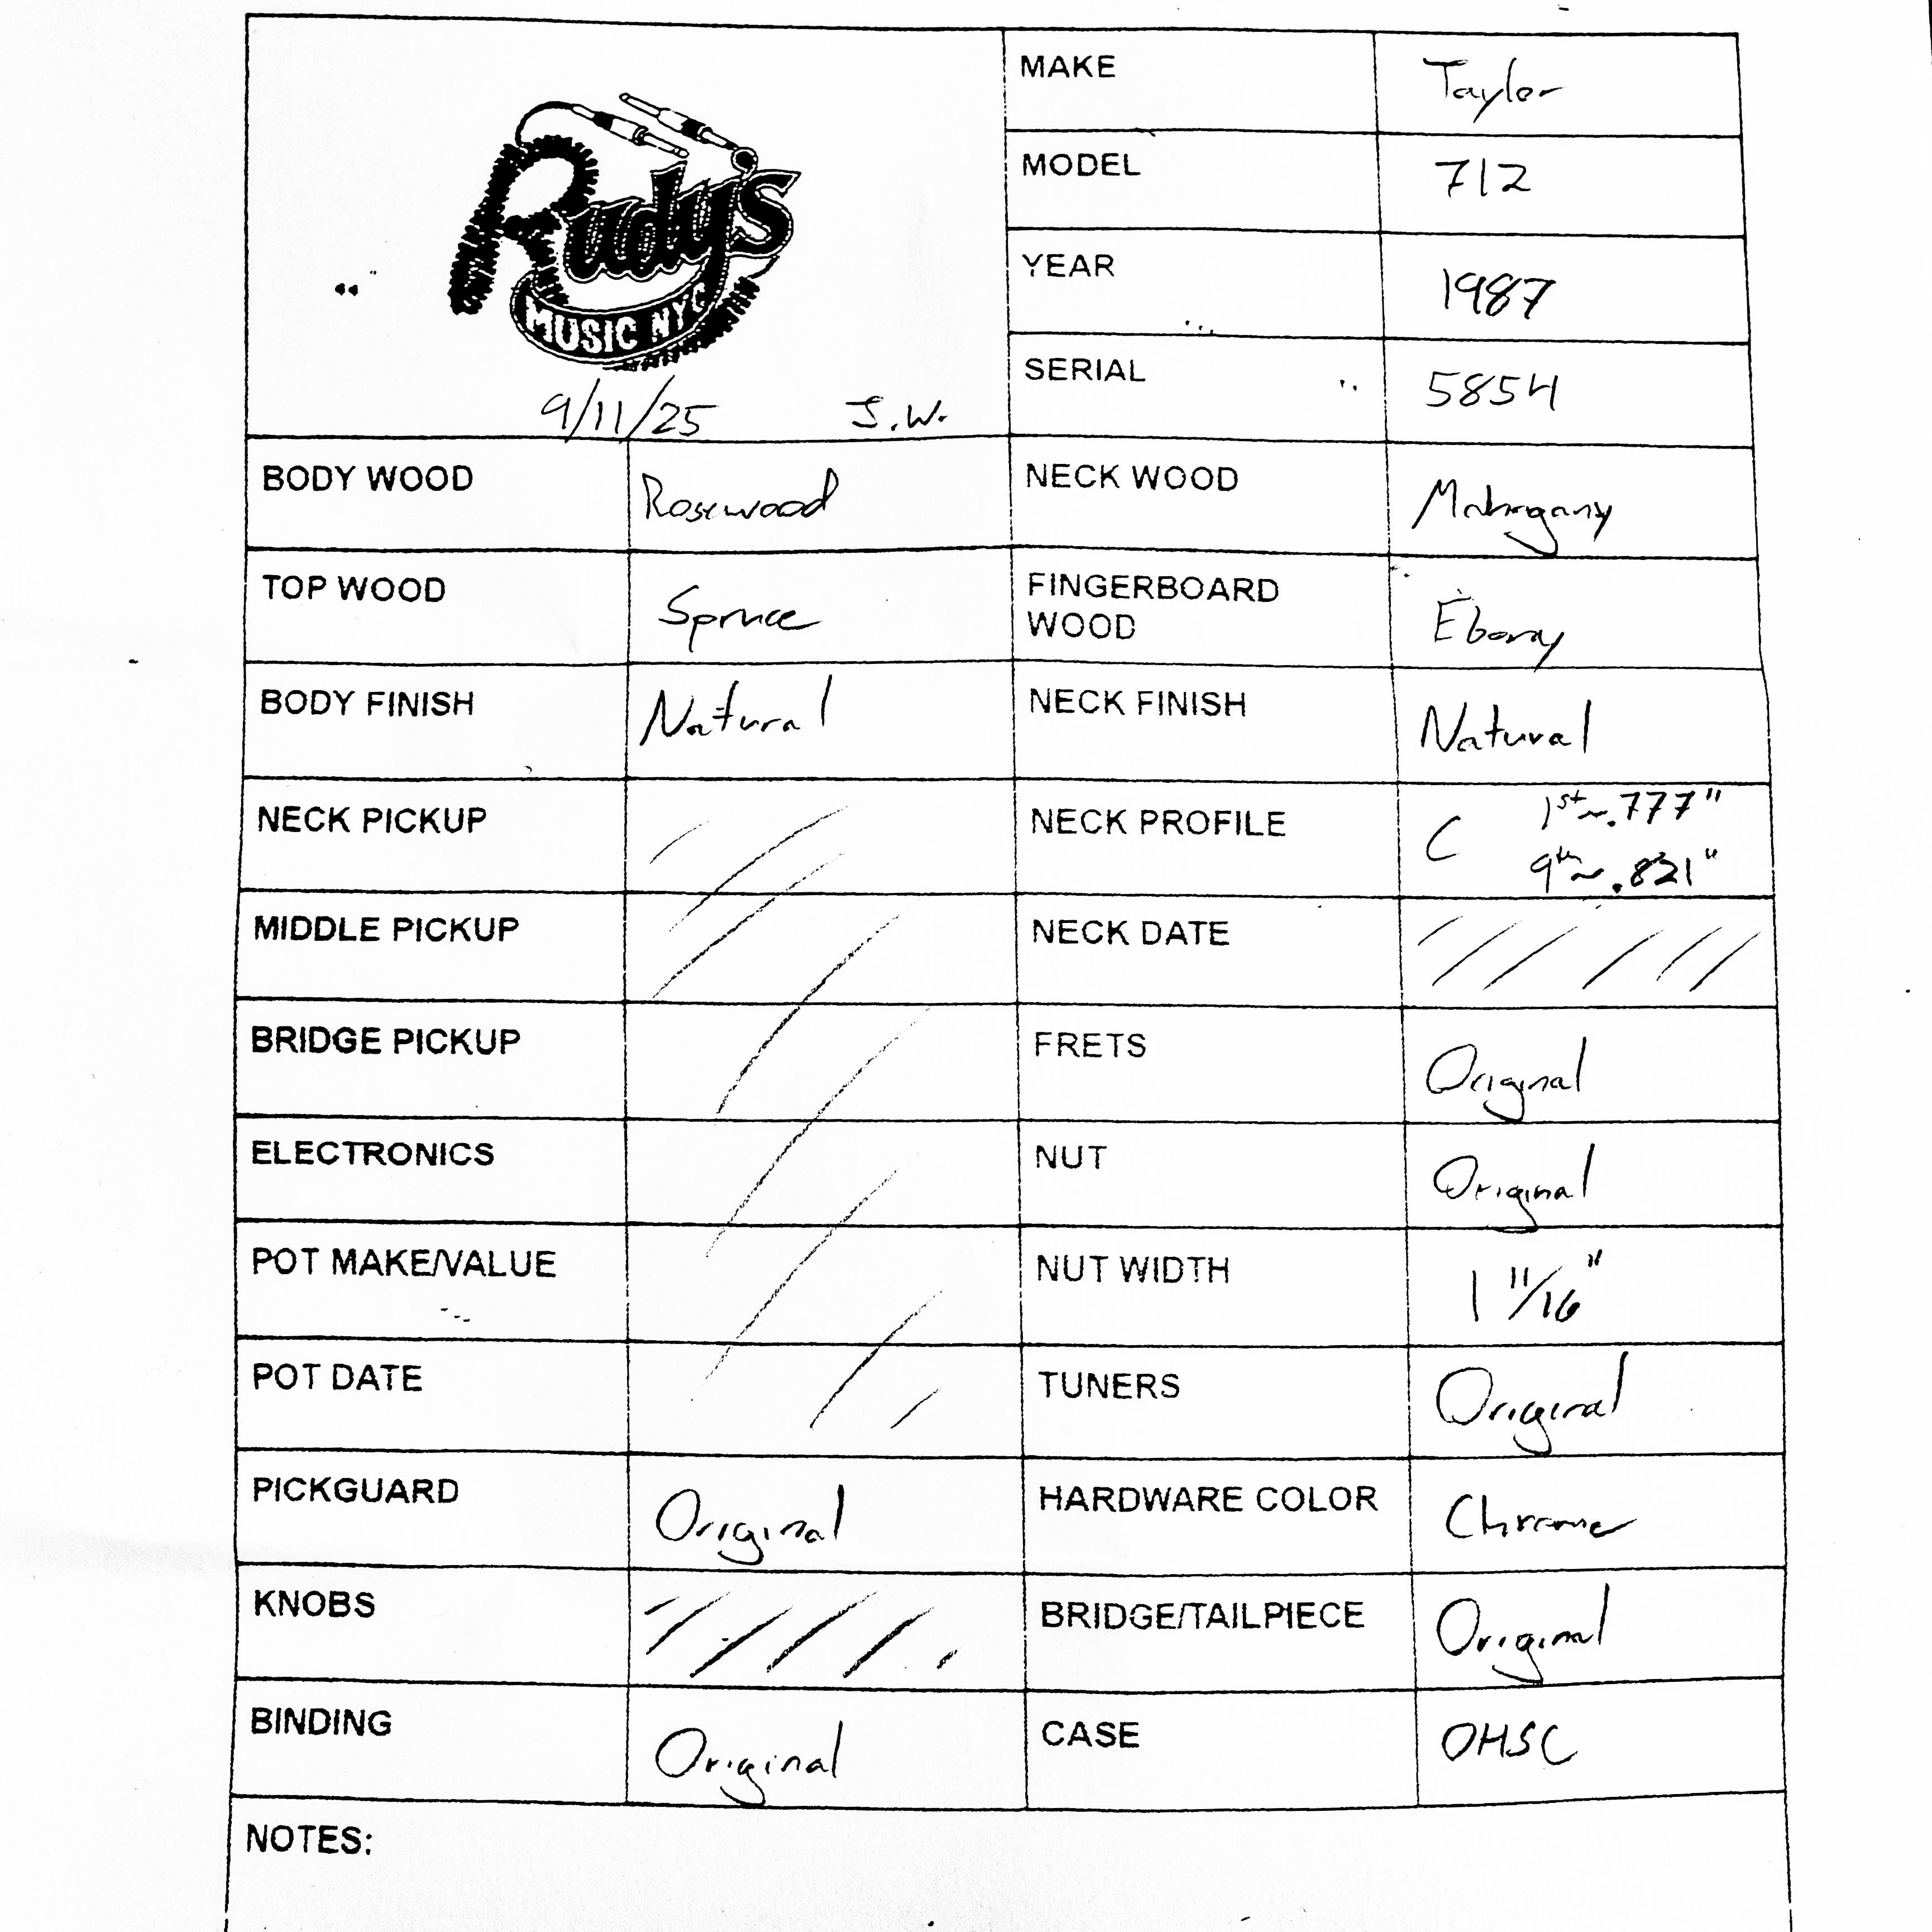 Rudy's
MUSIC NYC
9/11/25 J.W.
MAKE Taylor
MODEL 712
YEAR 1987
SERIAL 5854
BODY WOOD Rosewood NECK WOOD Mahogany
TOP WOOD Spruce FINGERBOARD
WOOD Ebony
BODY FINISH Natural NECK FINISH Natural
NECK PICKUP NECK PROFILE C 1st ~ .777"
9th ~ .821"
MIDDLE PICKUP NECK DATE
BRIDGE PICKUP FRETS Original
ELECTRONICS NUT Original
POT MAKE/VALUE NUT WIDTH 1 11/16"
POT DATE TUNERS Original
PICKGUARD Original HARDWARE COLOR Chrome
KNOBS BRIDGE/TAILPIECE Original
BINDING Original CASE OHSC
NOTES: